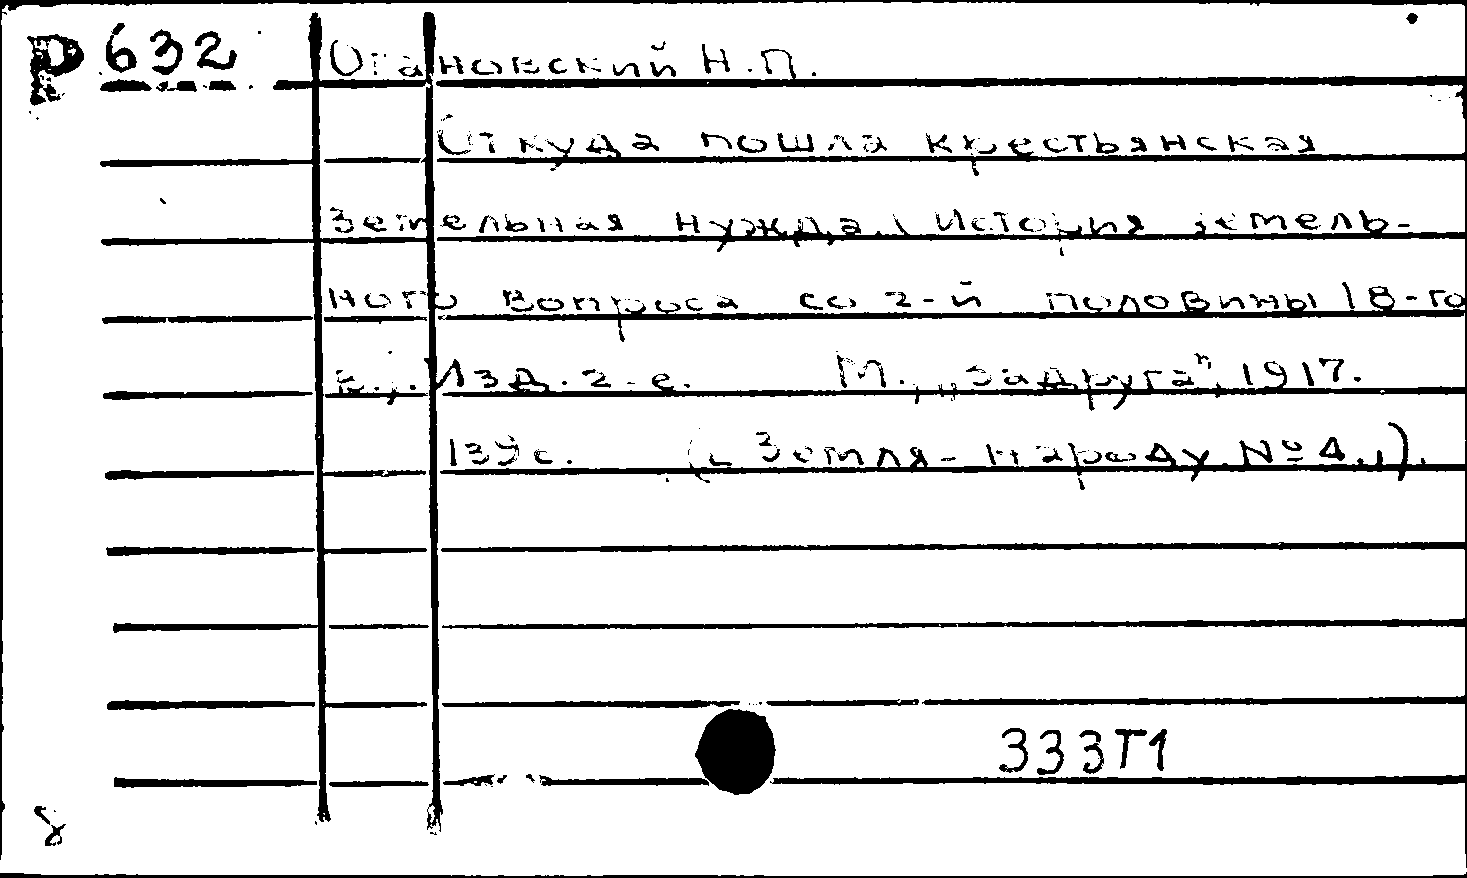 Р 632 Огановский Н.П.
Откуда пошла крестьянская
земельная нужда. (История земель-
ного вопроса со 2-й половины 18-го
в., Изд. 2-е. М., „Задруга", 1917.
139 с. („Земля - народу. № 4.,).
333Т1
8